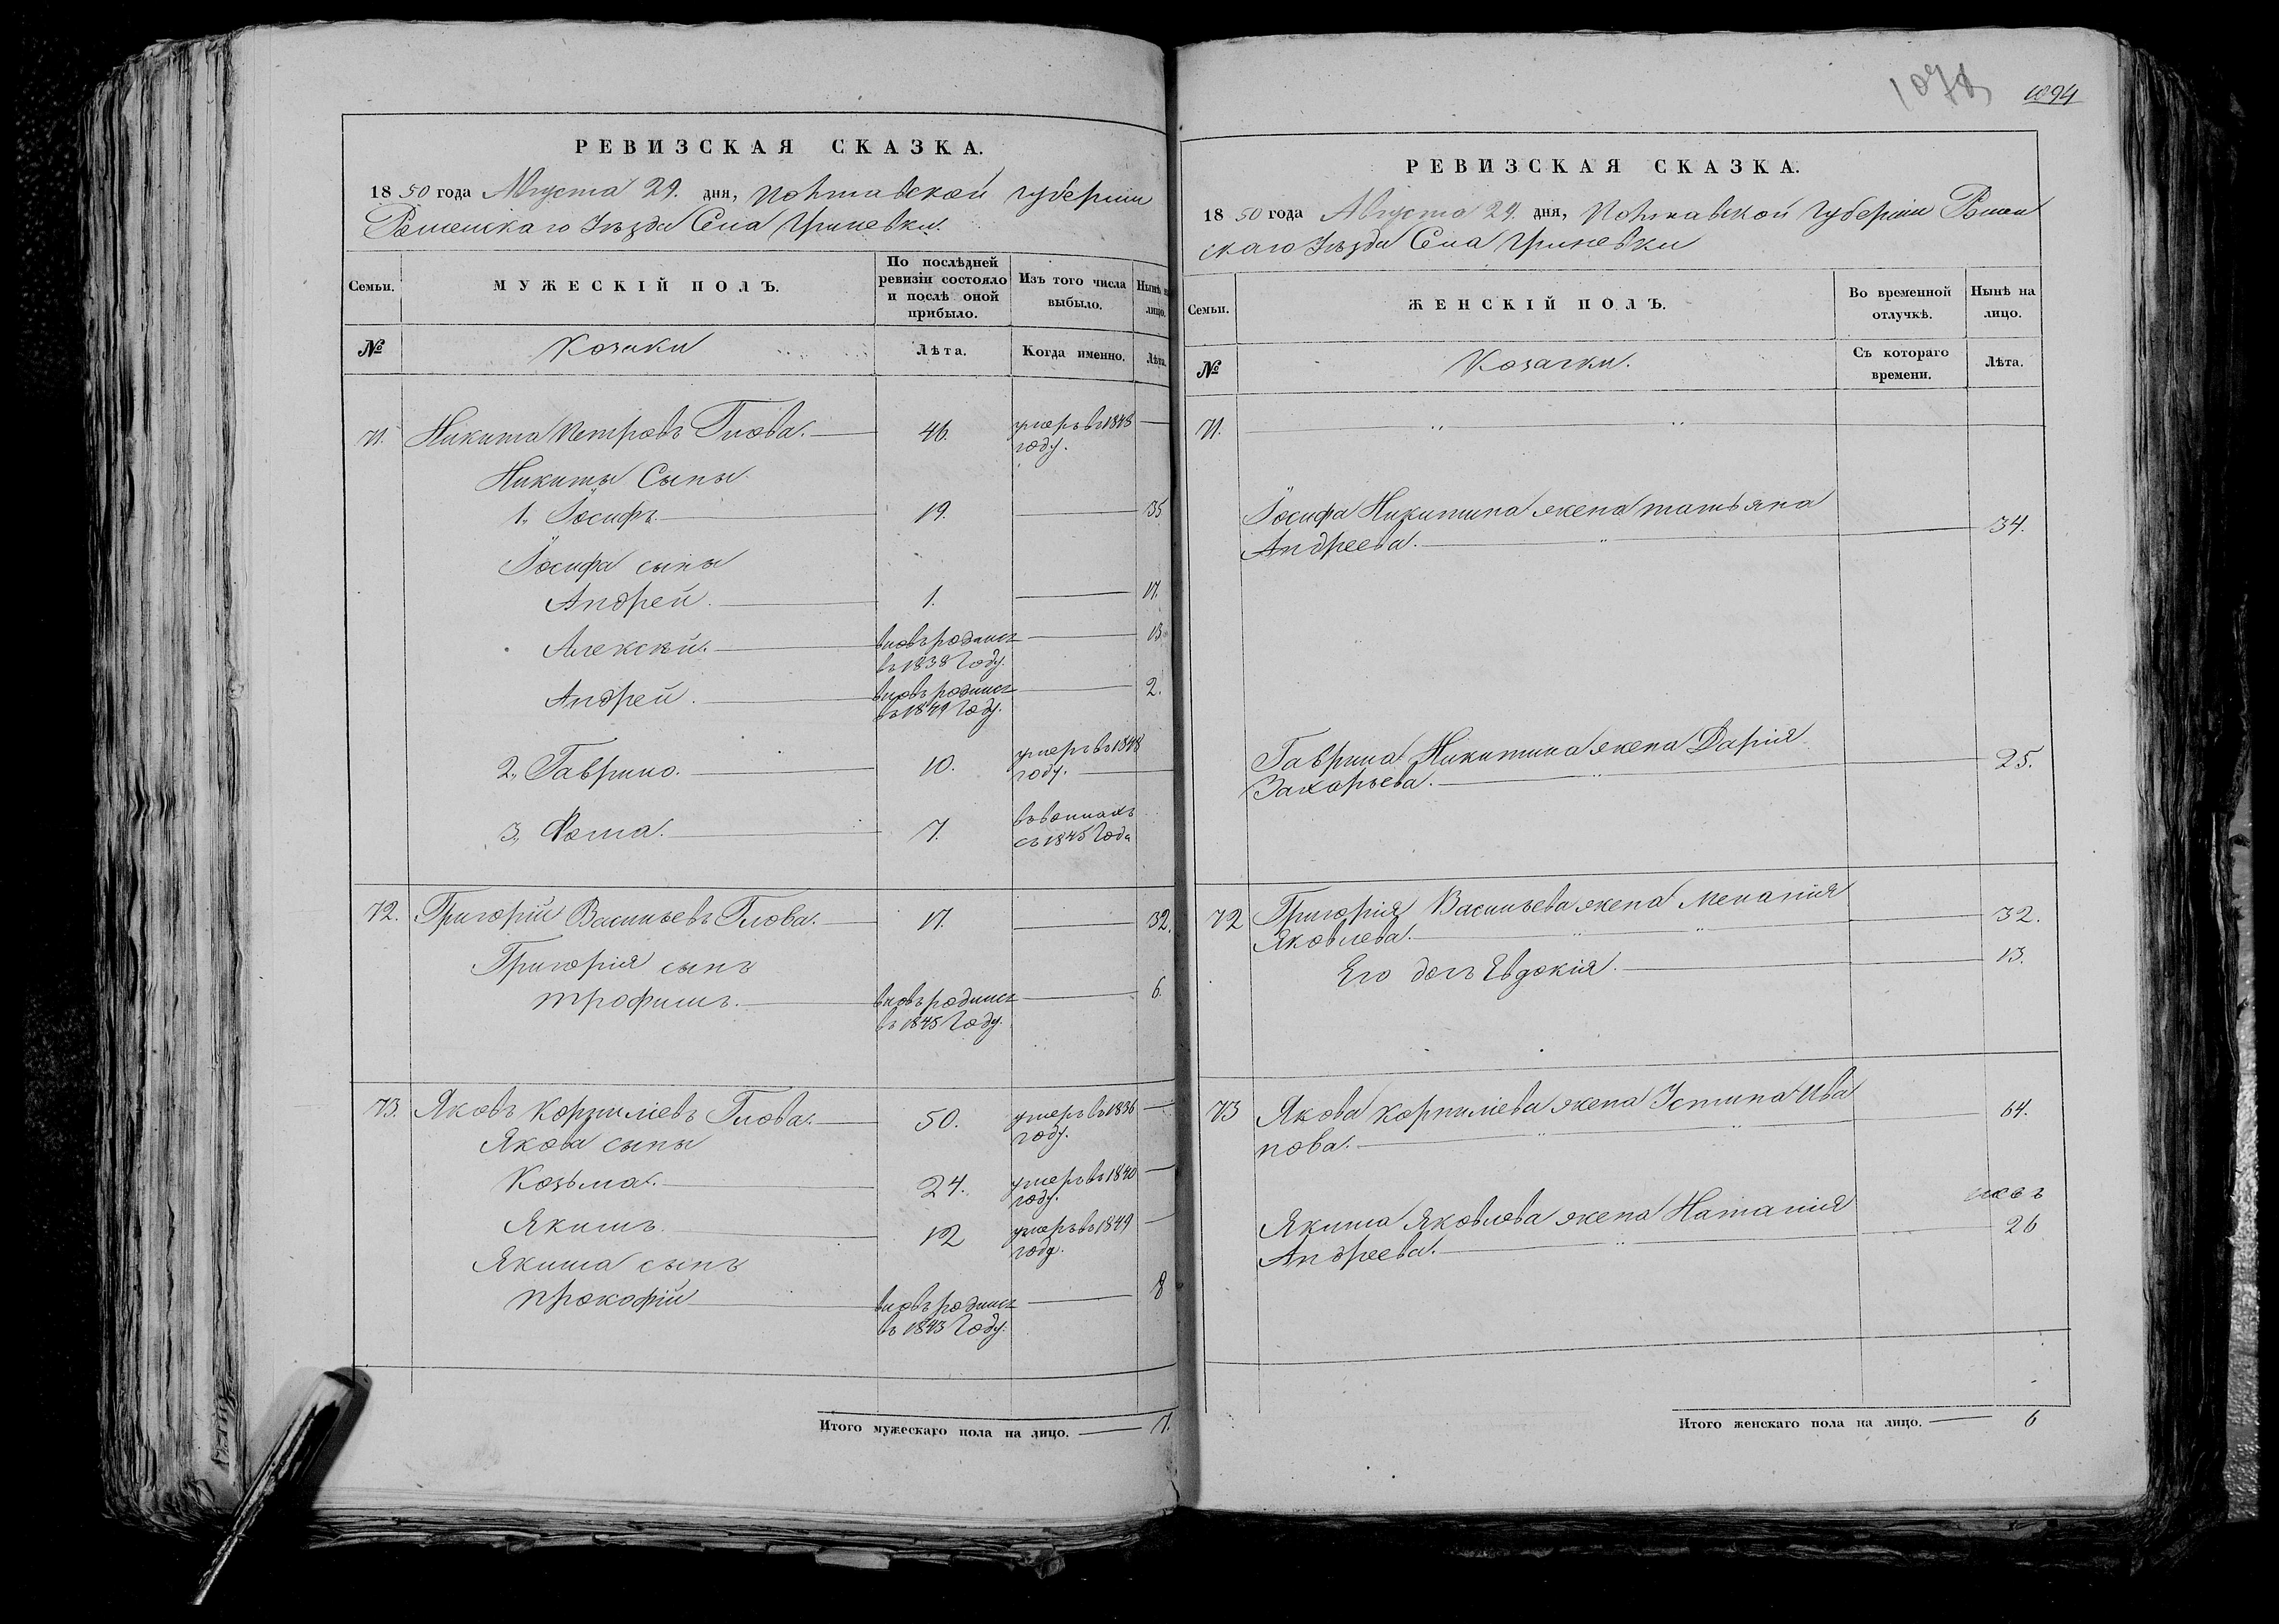 РЕВИЗСКАЯ СКАЗКА.
1850 года Августа 29. дня, Полтавской губернии
Роменскаго Уѣзда Села Гриневки.
Семьи.
МУЖЕСКІЙ ПОЛЪ.
По послѣдней ревизіи состояло и послѣ оной прибыло.
Изъ того числа выбыло.
Нынѣ на лицо.
№
Козаки
Лѣта.
Когда именно.
Лѣта.
71. Никита Петровъ Глова. 46. умеръ въ 1843 году.
Никиты Сыны
1., Іосифъ. 19. 35
Іосифа сыны
Андрей. 1. 17.
Алексѣй. вновь родился въ 1838 Году. 13
Андрей. вновь родился въ 1849 Году. 2.
2., Гаврило. 10. умеръ въ 1848 году.
3., Фома. 7. съ 1845 Года
72. Григорій Васильевъ Глова. 17. 32.
Григорія сынъ
Трофимъ. вновь родился въ 1845 Году. 6.
73. Яковъ Корниліевъ Глова. 50. умеръ въ 1836 году.
Якова сыны
Козьма. 24. умеръ въ 1840 году.
Якимъ. 12 умеръ въ 1849 году.
Якима сынъ
Прокофій вновь родился въ 1843 Году. 8
Итого мужескаго пола на лицо. 7.
1094
РЕВИЗСКАЯ СКАЗКА.
1850 года Августа 29. дня, Полтавской Губерніи Ромен
скаго Уѣзда Села Гриневки
Семьи.
ЖЕНСКІЙ ПОЛЪ.
Во временной отлучкѣ.
Нынѣ на лицо.
№
Козачки.
Съ котораго времени.
Лѣта.
71.
Іосифа Никитина жена Татьяна
Андреева. 34.
Гаврила Никитина жена Дарія
Захарьева. 25.
72 Григорія Васильева жена Меланія
Яковлева. 32.
Его дочь Евдокія. 13.
73 Якова Корниліева жена Устина Ива
нова. 64.
Якима Яковлева жена Наталія
Андреева. 26
Итого женскаго пола на лицо. 6